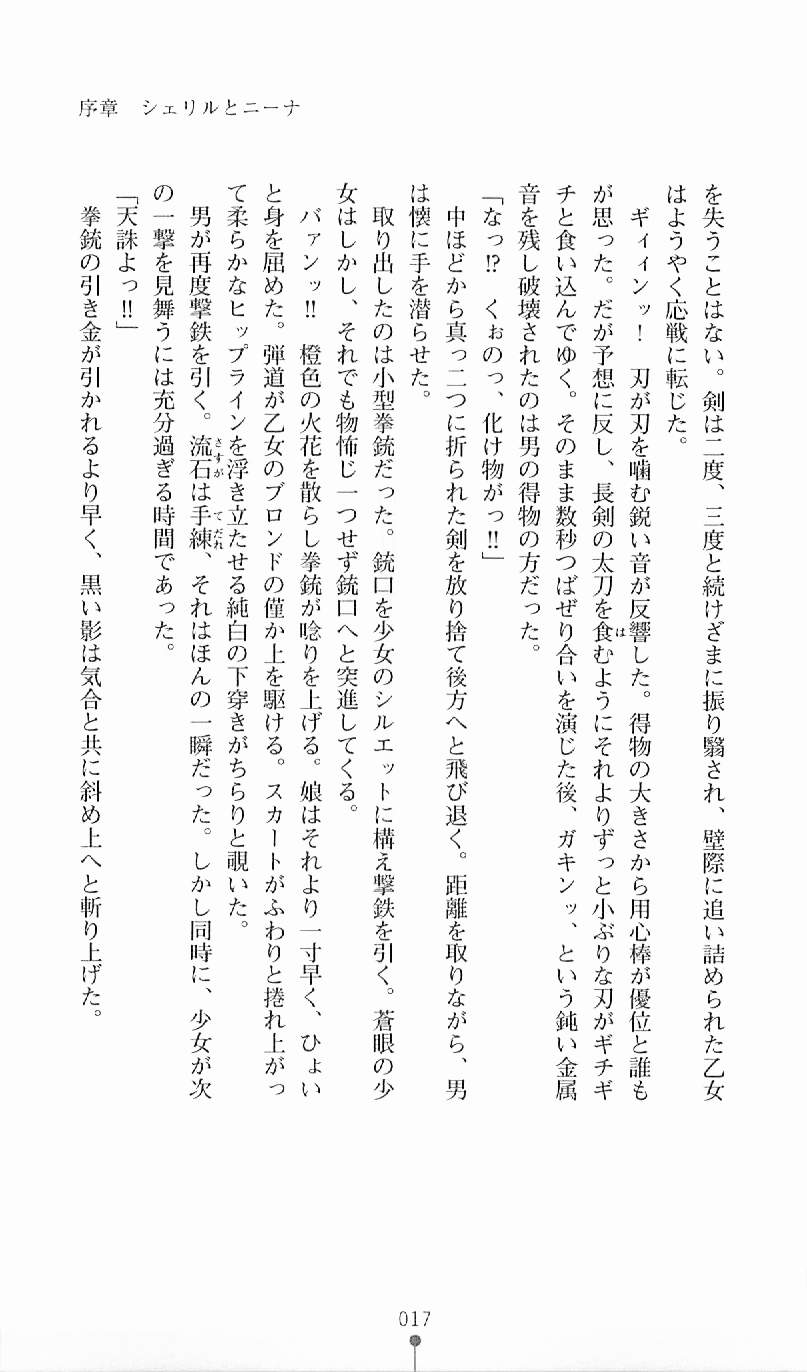 序章　シェリルとニーナ
を失うことはない。剣は二度、三度と続けざまに振り翳され、壁際に追い詰められた乙女
はようやく応戦に転じた。
　ギィィンッ！　刃が刃を噛む鋭い音が反響した。得物の大きさから用心棒が優位と誰も
が思った。だが予想に反し、長剣の太刀を食むようにそれよりずっと小ぶりな刃がギチギ
チと食い込んでゆく。そのまま数秒つばぜり合いを演じた後、ガキンッ、という鈍い金属
音を残し破壊されたのは男の得物の方だった。
「なっ!?　くぉのっ、化け物がっ!!」
　中ほどから真っ二つに折られた剣を放り捨て後方へと飛び退く。距離を取りながら、男
は懐に手を潜らせた。
　取り出したのは小型拳銃だった。銃口を少女のシルエットに構え撃鉄を引く。蒼眼の少
女はしかし、それでも物怖じ一つせず銃口へと突進してくる。
　バァンッ!!　橙色の火花を散らし拳銃が唸りを上げる。娘はそれより一寸早く、ひょい
と身を屈めた。弾道が乙女のブロンドの僅か上を駆ける。スカートがふわりと捲れ上がっ
て柔らかなヒップラインを浮き立たせる純白の下穿きがちらりと覗いた。
　男が再度撃鉄を引く。流石は手練、それはほんの一瞬だった。しかし同時に、少女が次
の一撃を見舞うには充分過ぎる時間であった。
「天誅よっ!!」
　拳銃の引き金が引かれるより早く、黒い影は気合と共に斜め上へと斬り上げた。
017